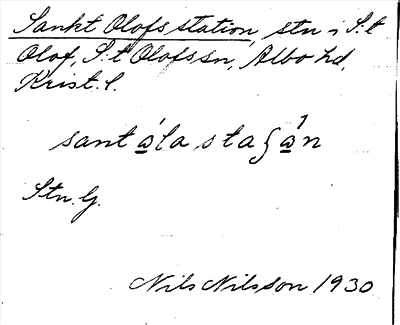 Sankt Olofs station, stn i S:t
Olof, S:t Olofs sn, Albo hd,
Krist. l.
sant ώ̲la staʃώ̲n
Stn. G.
Nils Nilsson 1930